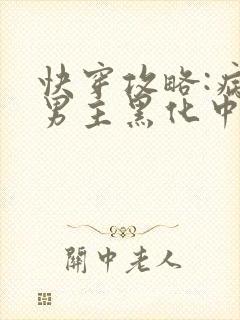 快穿攻略:病
男主黑化中
關中老人